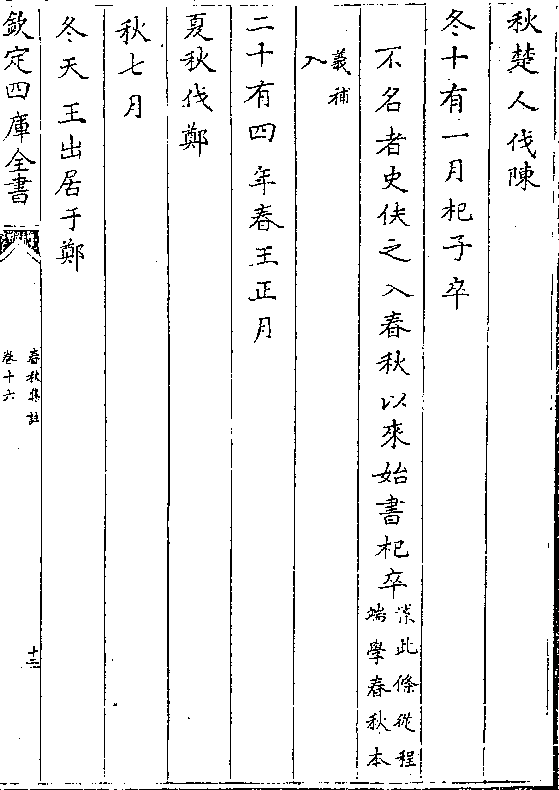 秋楚人伐陳
冬十有一月杞子卒
不名者史佚之入春秋以來始書杞卒案此條從程端學春秋本
義補入
二十有四年春王正月
夏秋伐鄭
秋七月
冬天王出居于鄭
欽定四庫全書
春秋集註
卷十六
十三